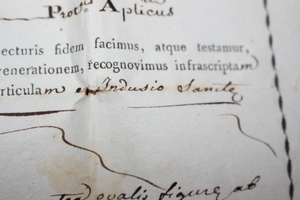 Prot.us Aplicus
ecturis fidem facimus, atque testamur,
venerationem, recognovimus infrascriptam
articulam ex Indusio Sanctæ
ovalis figuræ ab